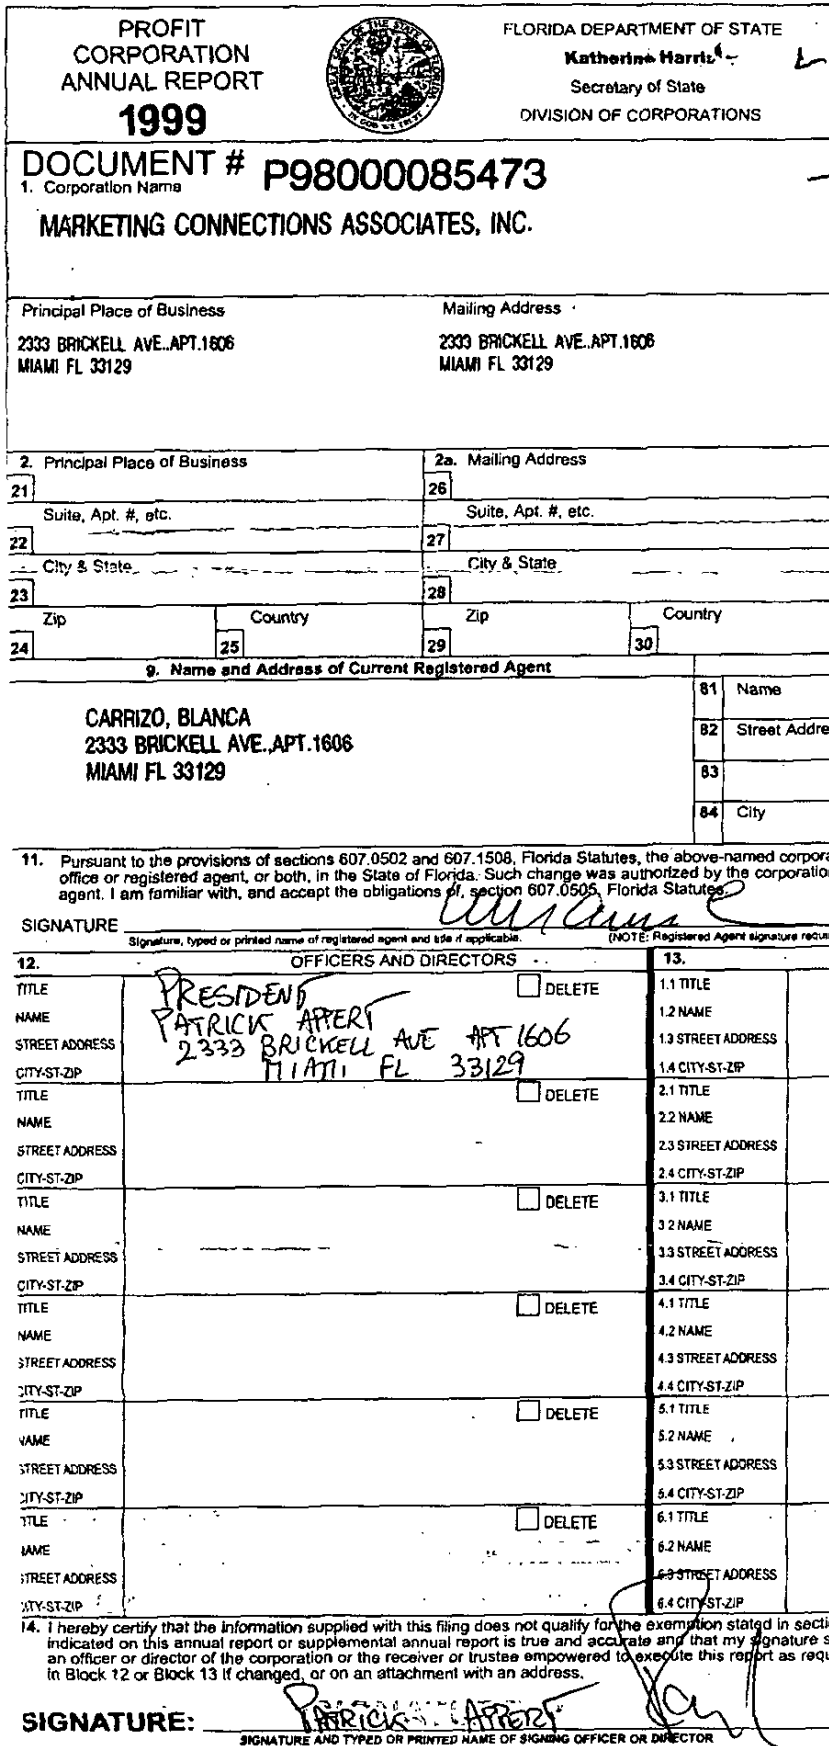 PROFIT
CORPORATION
ANNUAL REPORT
1999
GREAT SEAL OF THE STATE OF FLORIDA
IN GOD WE TRUST
FLORIDA DEPARTMENT OF STATE
Katherine Harris
Secretary of State
DIVISION OF CORPORATIONS
DOCUMENT # P98000085473
1. Corporation Name
MARKETING CONNECTIONS ASSOCIATES, INC.
Principal Place of Business
2333 BRICKELL AVE.,APT.1606
MIAMI FL 33129
Mailing Address
2333 BRICKELL AVE.,APT.1606
MIAMI FL 33129
2. Principal Place of Business
2a. Mailing Address
21
26
Suite, Apt. #, etc.
Suite, Apt. #, etc.
22
27
City & State
City & State
23
28
Zip
Country
Zip
Country
24
25
29
30
9. Name and Address of Current Registered Agent
81 Name
CARRIZO, BLANCA
2333 BRICKELL AVE.,APT.1606
MIAMI FL 33129
82 Street Addre
83
84 City
11. Pursuant to the provisions of sections 607.0502 and 607.1508, Florida Statutes, the above-named corpora
office or registered agent, or both, in the State of Florida. Such change was authorized by the corporatio
agent. I am familiar with, and accept the obligations of, section 607.0505, Florida Statutes.
SIGNATURE
Signature, typed or printed name of registered agent and title if applicable.
(NOTE: Registered Agent signature requi
12. OFFICERS AND DIRECTORS
13.
TITLE PRESIDENT DELETE
NAME PATRICK APPERT
STREET ADDRESS 2333 BRICKELL AVE APT 1606
CITY-ST-ZIP MIAMI FL 33129
1.1 TITLE
1.2 NAME
1.3 STREET ADDRESS
1.4 CITY-ST-ZIP
TITLE DELETE
NAME
STREET ADDRESS
CITY-ST-ZIP
2.1 TITLE
2.2 NAME
2.3 STREET ADDRESS
2.4 CITY-ST-ZIP
TITLE DELETE
NAME
STREET ADDRESS
CITY-ST-ZIP
3.1 TITLE
3.2 NAME
3.3 STREET ADDRESS
3.4 CITY-ST-ZIP
TITLE DELETE
NAME
STREET ADDRESS
CITY-ST-ZIP
4.1 TITLE
4.2 NAME
4.3 STREET ADDRESS
4.4 CITY-ST-ZIP
TITLE DELETE
NAME
STREET ADDRESS
CITY-ST-ZIP
5.1 TITLE
5.2 NAME
5.3 STREET ADDRESS
5.4 CITY-ST-ZIP
TITLE DELETE
NAME
STREET ADDRESS
CITY-ST-ZIP
6.1 TITLE
6.2 NAME
6.3 STREET ADDRESS
6.4 CITY-ST-ZIP
14. I hereby certify that the information supplied with this filing does not qualify for the exemption stated in secti
indicated on this annual report or supplemental annual report is true and accurate and that my signature s
an officer or director of the corporation or the receiver or trustee empowered to execute this report as requ
in Block 12 or Block 13 if changed, or on an attachment with an address.
SIGNATURE: PATRICK APPERT
SIGNATURE AND TYPED OR PRINTED NAME OF SIGNING OFFICER OR DIRECTOR